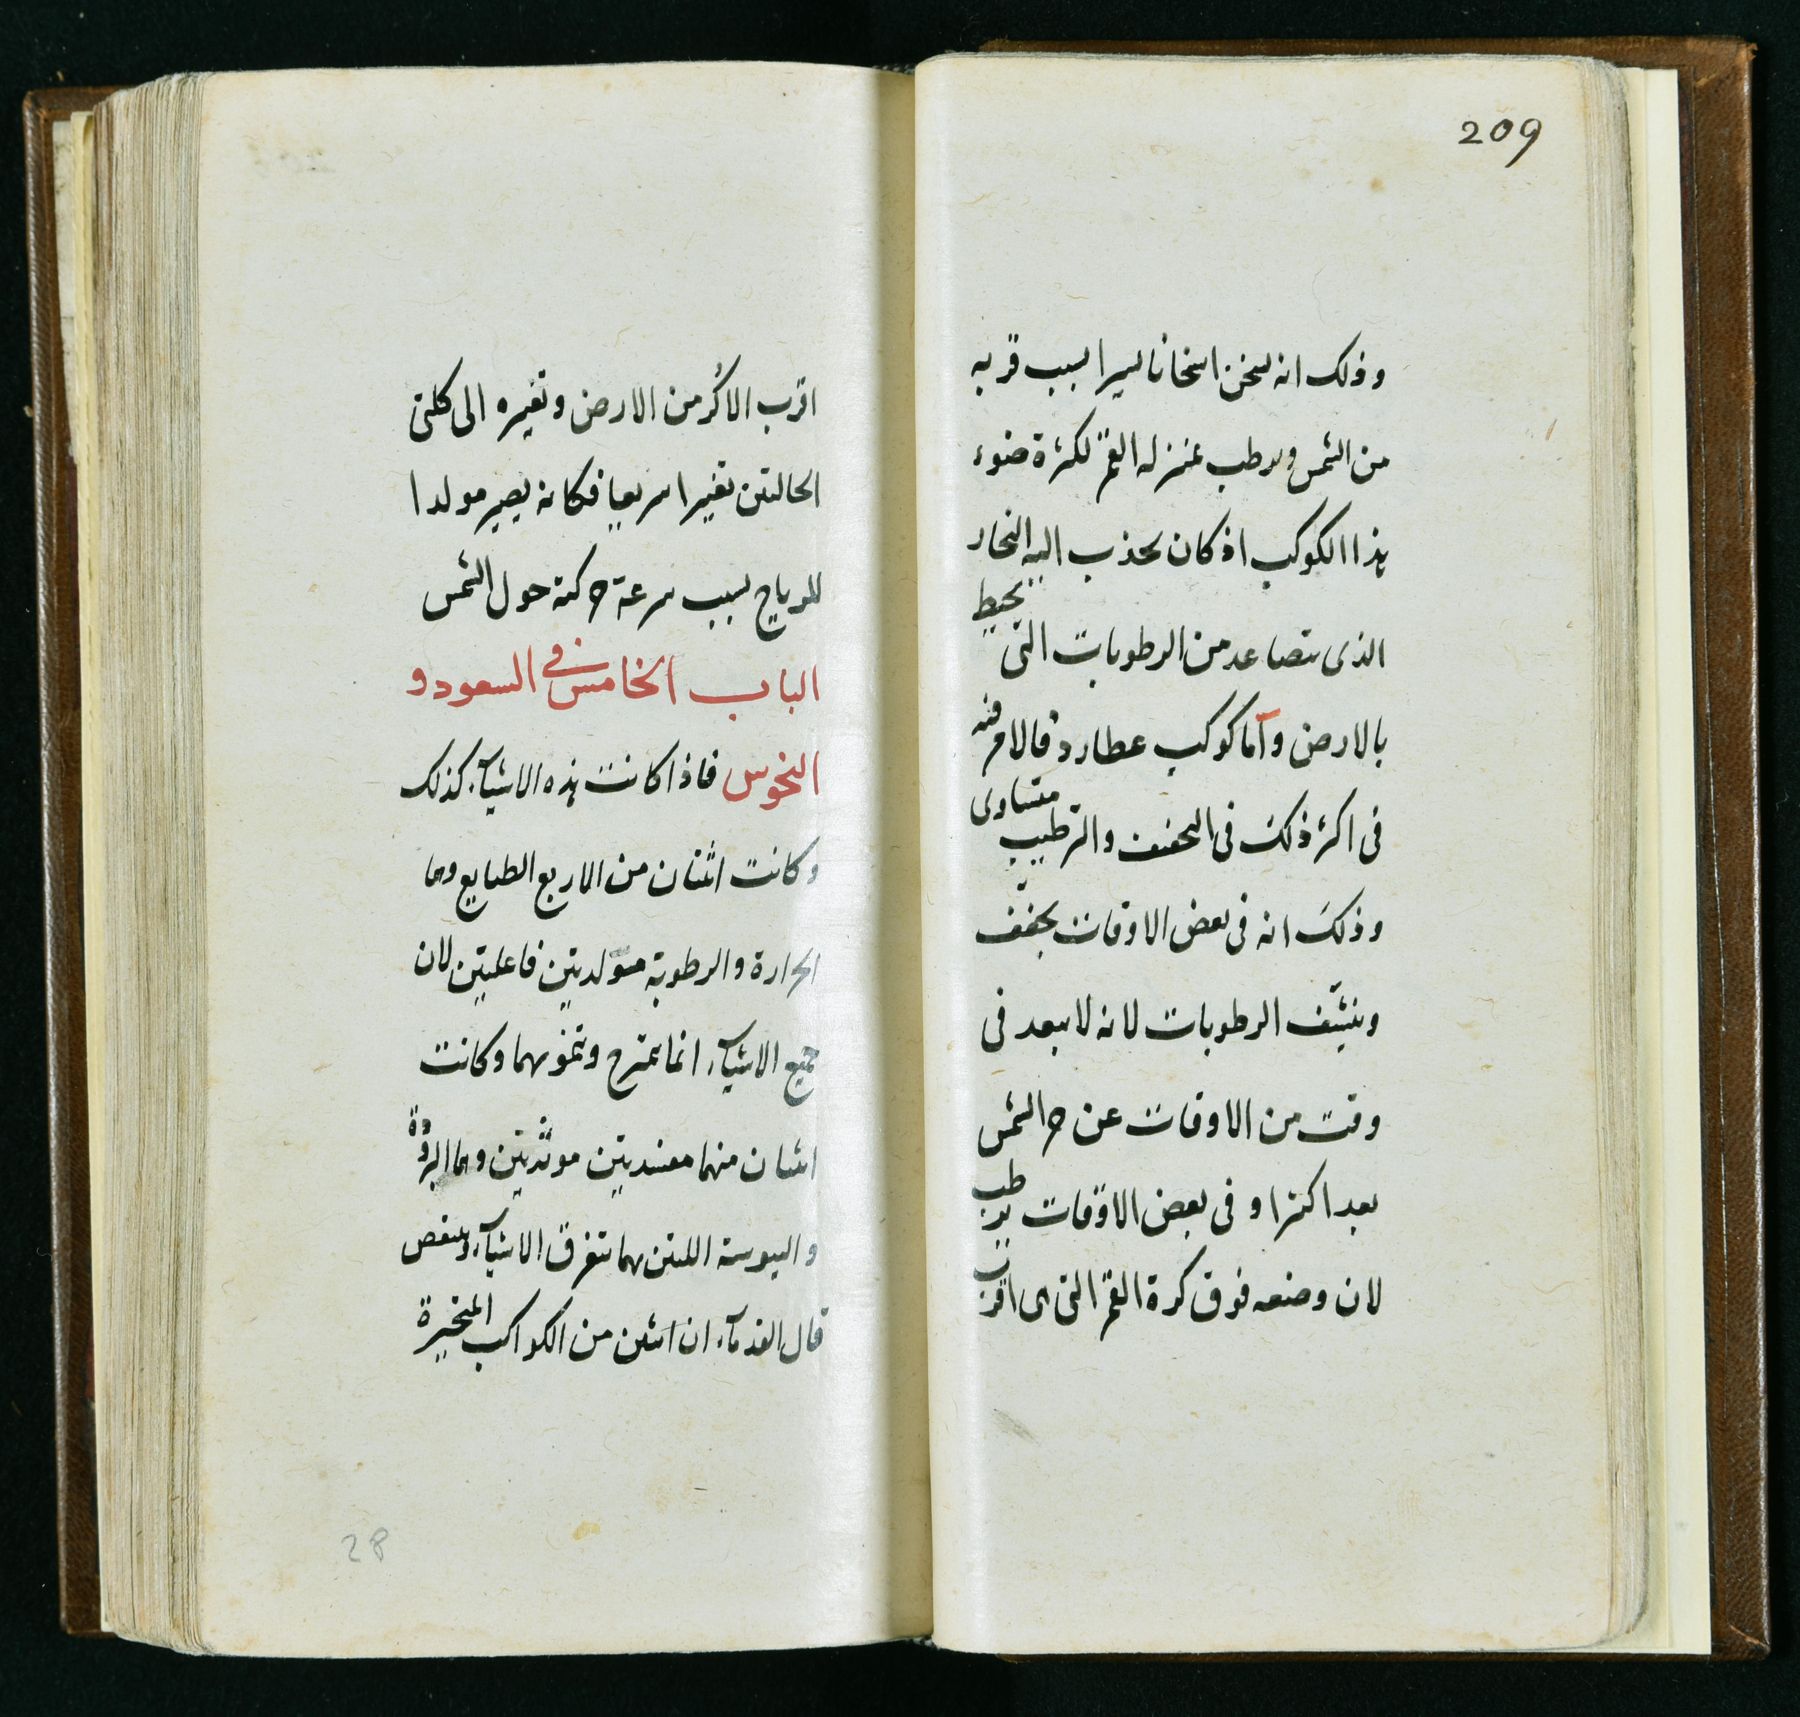 209
وذلك انه يسخن اسخانا يسيرا بسبب قربه
من الشمس ويرطب بمنزله القمر لكثرة ضوء
هذا الكوكب اذ كان يجذب اليه البخار
الذى يتصاعد من الرطوبات التى يحيط
بالارض وآما كوكب عطارد فالامر فيه
فى اكثر ذلك فى التجفيف والترطيب متساوى
وذلك انه فى بعض الاوقات يجفّف
وينشّف الرطوبات لانه لا يبعد فى
وقت من الاوقات عن حر الشمس
بعدا كثيرا وفى بعض الاوقات يرطب
لان وضعه فوق كرة القمر التى هى اقرب
اقرب الاكُر من الارض وتغيره الى كلتى
الحالتين تغيرا سريعا فكانه يصير مولدا
للرياح بسبب سرعة حركته حول الشمس
الباب الخامس فى السعود و
النحوس فاذا كانت هذه الاشيآء كذلك
وكانت اثنتان من الاربع الطبايع وهما
الحرارة والرطوبة مولدتين فاعليتين لان
جميع الاشيآء انما تمتزج وتنمو بهما وكانت
اثنتان منهما مفسدتين موذيتين وهما البرودة
واليبوسة اللتين بهما تتفرق الاشيآء وينقص
قال القدمآء ان اثنين من الكواكب المتحيرة
28